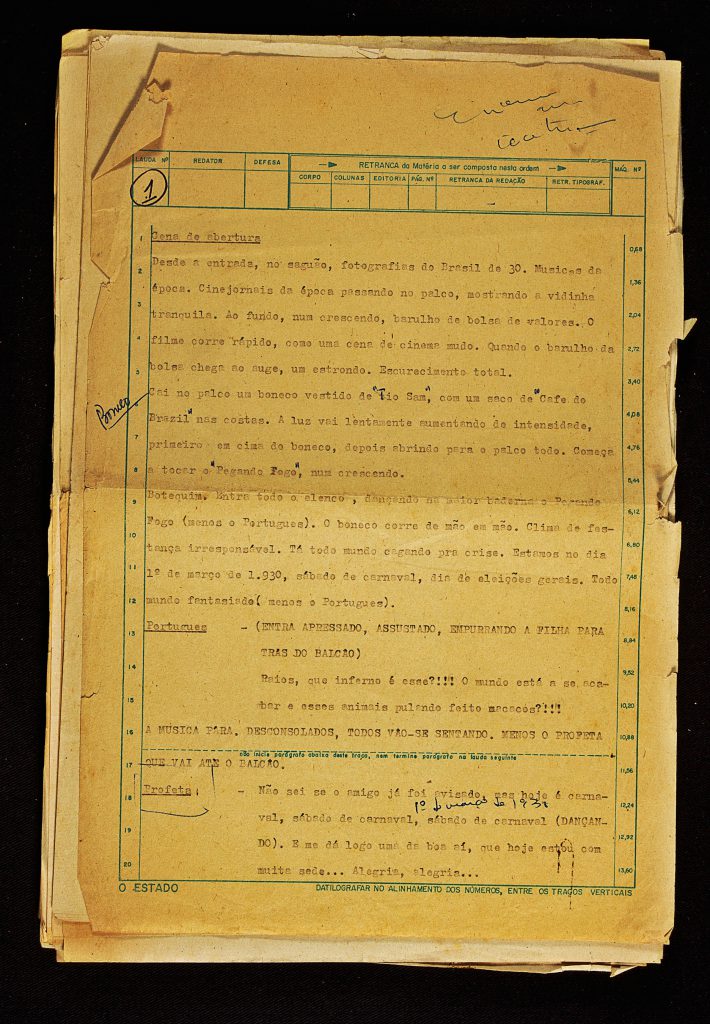 LAUDA Nº REDATOR DEFESA RETRANCA da Matéria a ser composta nesta ordem MÁQ. Nº
CORPO COLUNAS EDITORIA PÁG. Nº RETRANCA DA REDAÇÃO RETR. TIPOGRAF.
1
1 Cena de abertura 0,68
2 Desde a entrada, no saguão, fotografias do Brasil de 30. Musicas da 1,36
3 época. Cinejornais da época passando no palco, mostrando a vidinha
tranquila. Ao fundo, num crescendo, barulho de bolsa de valores. O 2,04
4 filme corre rápido, como uma cena de cinema mudo. Quando o barulho da 2,72
5 bolsa chega ao auge, um estrondo. Escurecimento total. 3,40
Boneco
6 Cai no palco um boneco vestido de "Tio Sam", com um saco de "Cafe do
Brazil" nas costas. A luz vai lentamente aumentando de intensidade, 4,08
7 primeiro em cima do boneco, depois abrindo para o palco todo. Começa 4,76
8 a tocar o "Pegando Fogo", num crescendo. 5,44
9 Botequim. Entra todo o elenco, dançando na maior baderna o Pegando
Fogo (menos o Portugues). O boneco corre de mão em mão. Clima de fes- 6,12
10 tança irresponsável. Tá todo mundo cagando pra crise. Estamos no dia 6,80
11 1º de março de 1.930, sábado de carnaval, dia de eleições gerais. Todo 7,48
12 mundo fantasiado( menos o Portugues). 8,16
13 Portugues - (ENTRA APRESSADO, ASSUSTADO, EMPURRANDO A FILHA PARA 8,84
14 TRAS DO BALCÃO)
15 Raios, que inferno é esse?!!! O mundo está a se aca- 9,52
bar e esses animais pulando feito macacos?!!! 10,20
16 A MUSICA PÁRA. DESCONSOLADOS, TODOS VÃO-SE SENTANDO. MENOS O PROFETA 10,88
não inicie parágrafo abaixo deste traço, nem termine parágrafo na lauda seguinte
17 QUE VAI ATE O BALCÃO. 11,56
18 Profeta - Não sei se o amigo já foi avisado, mas hoje é carna-
1º de março de 1930 12,24
19 val, sábado de carnaval, sábado de carnaval (DANÇAN-
DO). E me dá logo uma da boa aí, que hoje estou com 12,92
20 muita sede... Alegria, alegria... 13,60
O ESTADO DATILOGRAFAR NO ALINHAMENTO DOS NÚMEROS, ENTRE OS TRAÇOS VERTICAIS